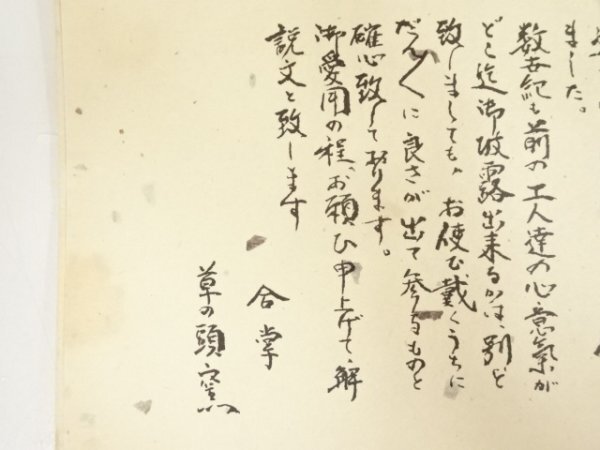 ました。
数世紀も前の工人達の心意氣が
どこ迄御披露出来るかは、別と
致しましても、お使い戴くうちに
だんだんに良さが出て参るものと
確心致しております。
御愛用の程、お願ひ申上げて、解
説文と致します
合掌
草の頭窯